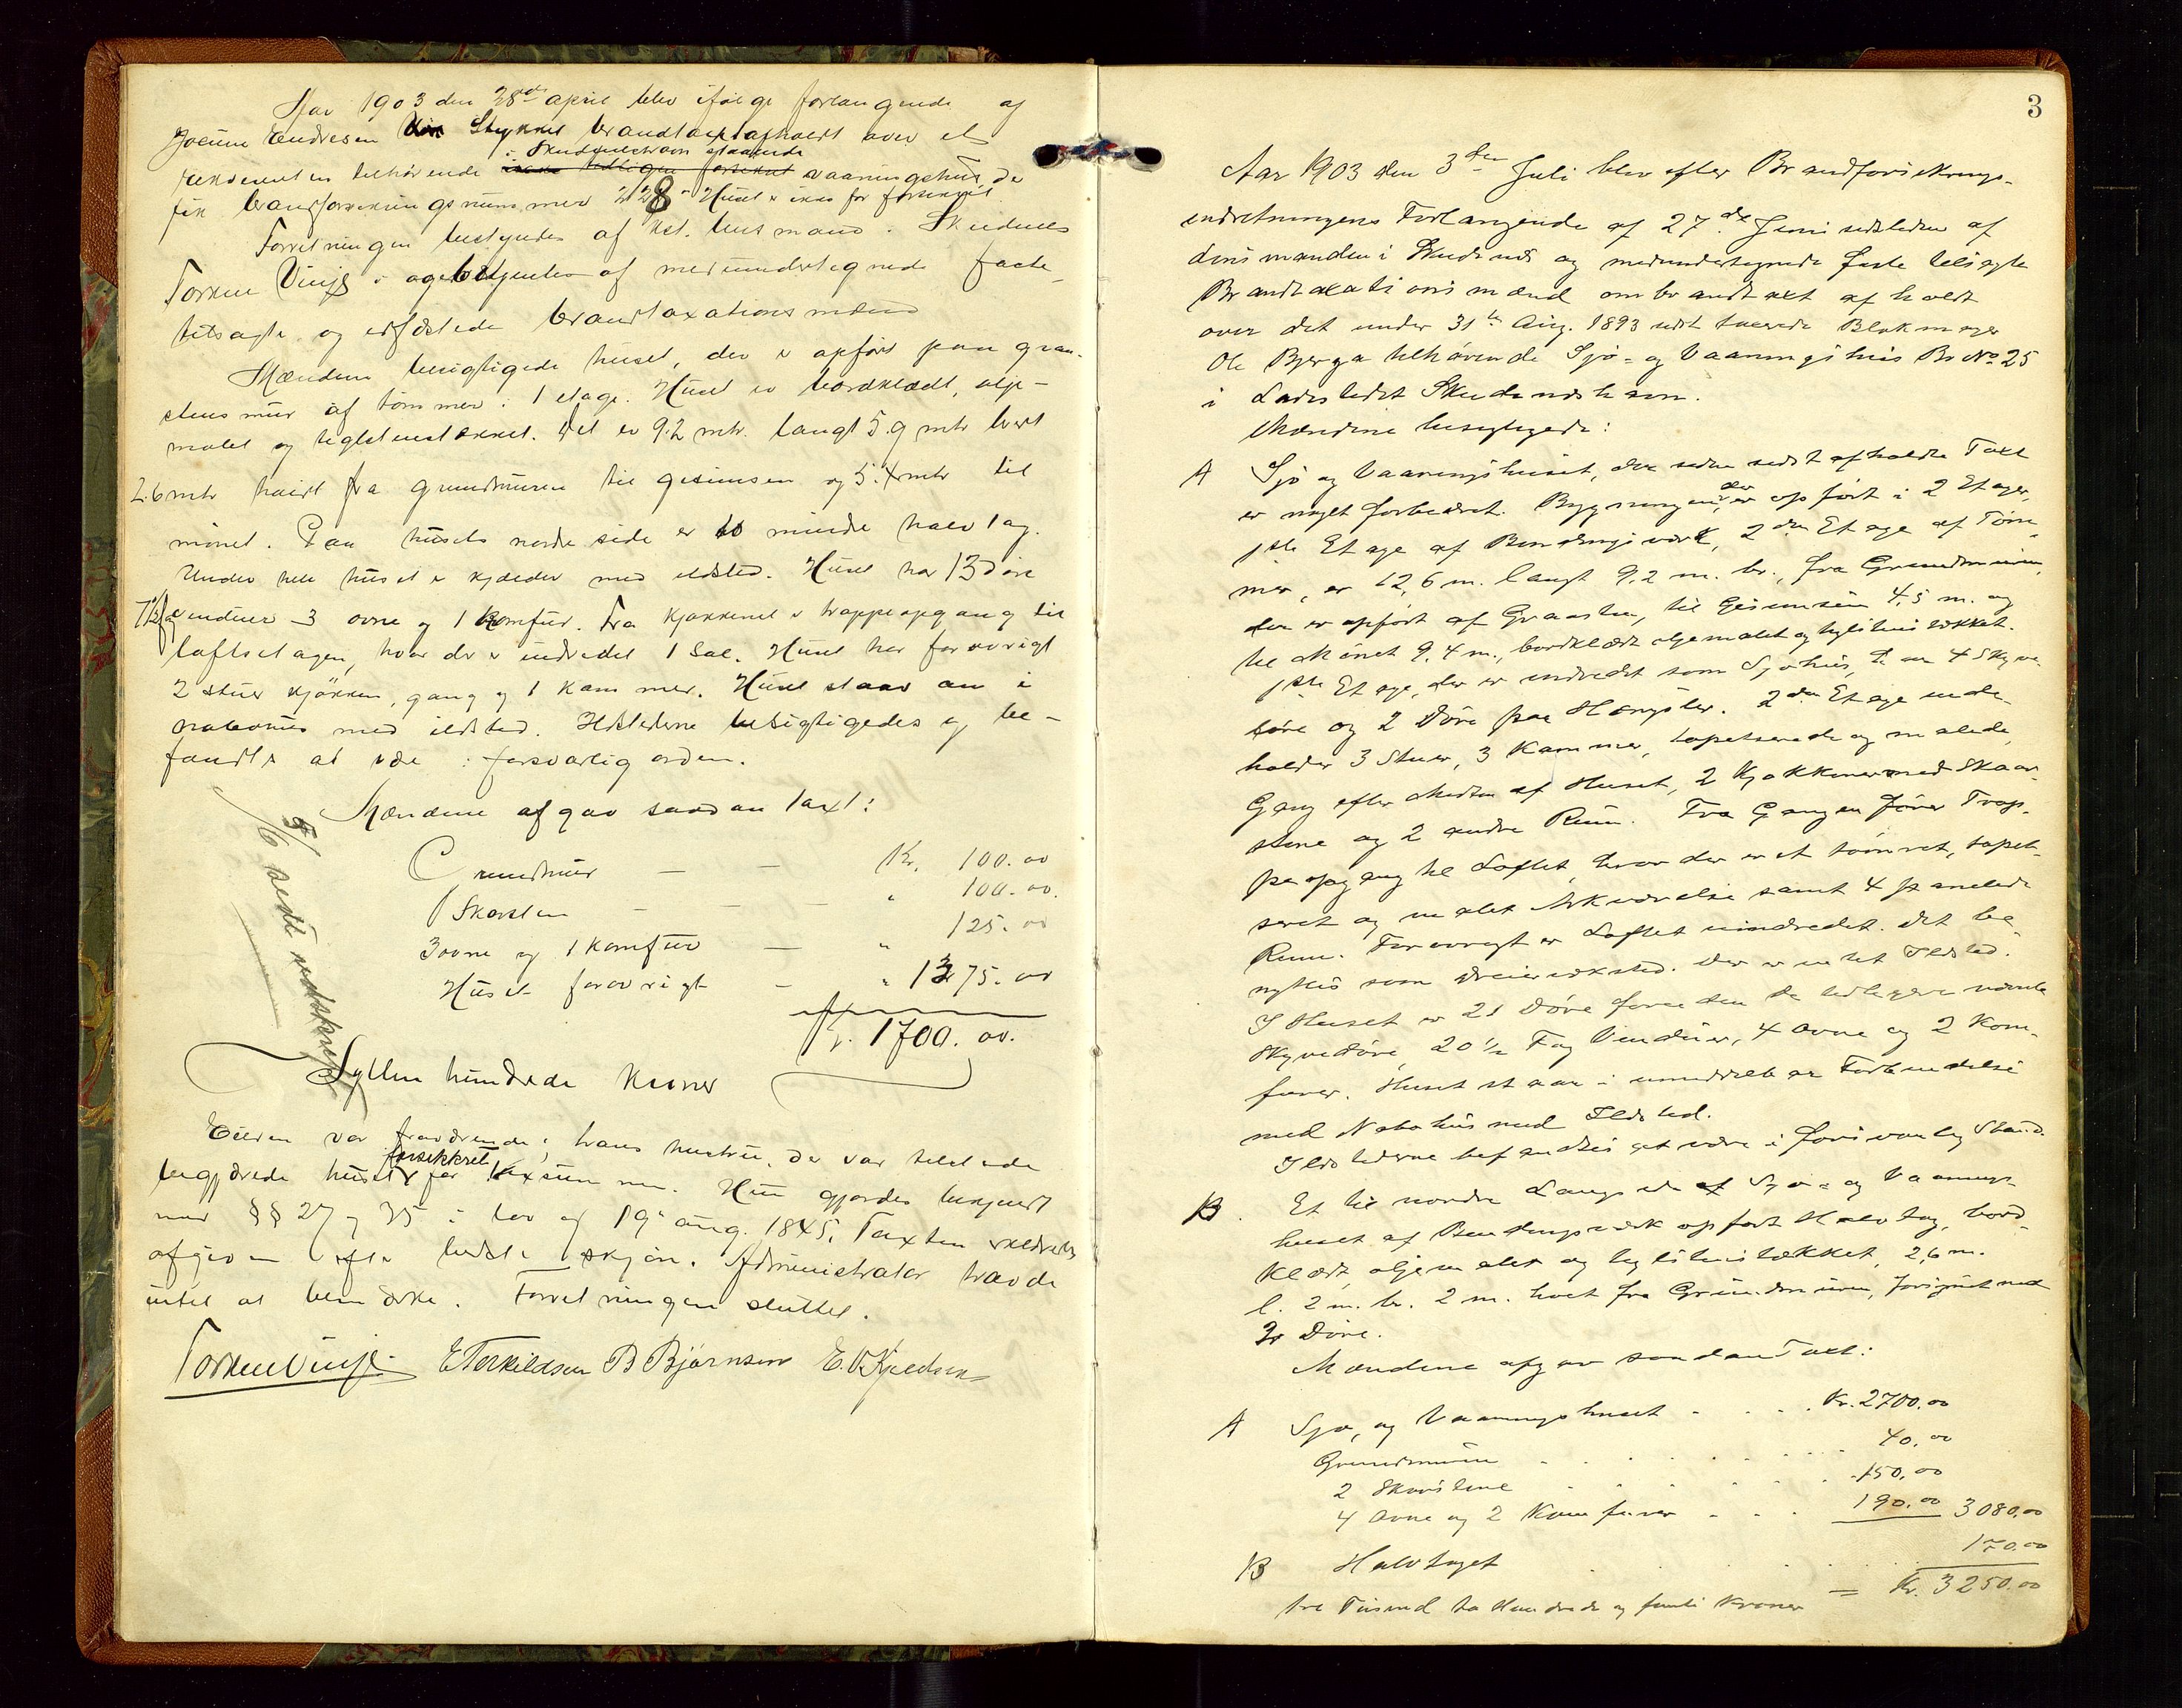 Aar 1903 den 28de april blev ifølge forlangende af
Jocum Endresen Stykket brandtaxt afholdt over et
i Skudeneshavn staaende
rekvirenten tilhørende ikke tidligere forsikret vaaningshus, der
fik brandforsikringsnummer 228. Huset er ikke før forsikret.
Forretningen bestyrtes af kst. lensmand i Skudenes
Torkel Vinje og betjentes af medundertegnede faste
tilsagte og edfæstede brandtaxationsmænd
Mændene besigtigede huset, der er opført paa graa-
stensmur af tømmer i 1 etage. Huset er bordklædt, olje-
malet og teglstenstækket. Det er 9.2 mtr. langt 5.9 mtr bredt
2.6 mtr høidt fra grundmuren til gesimsen og 5.4 mtr til
mønet. Paa husets nordre side er to mindre halvtag.
Under hele huset er kjælder med ildsted. Huset har 13 døre
7½ fag vinduer 3 ovne og 1 komfur. Fra kjøkkenet er trappeopgang til
loftsetagen, hvor der er indredet 1 Sal. Huset har forøvrigt
2 stuer kjøkken, gang og 1 kammer. Huset staar an i
nabohus med ildsted. Ildstederne besigtigedes og be-
fandtes at være i forsvarlig orden.
Mændene afgav saadan taxt:
Grundmur — — Kr. 100.00
Skorsten — — — " 100.00.
3 ovne og 1 komfur — " 125.00
Huset forøvrigt — " 1375.00
Kr. 1700.00.
Sytten hundrede Kroner
5/6 sendt udskrift
Eieren var fraværende; hans hustru, der var tilstede
forsikkret
begjærede huset for taxsummen. Hun gjordes bekjendt
med §§ 27 og 35 i lov af 19 aug. 1845. Taxten erklæredes
afgiven efter bedste skjøn. Administrator havde
intet at bemærke. Forretningen sluttet.
Torkel Vinje E Terkildsen B Bjørnsen E. O. Kjeldsen
3
Aar 1903 den 3die Juli blev efter Brandforsikrings-
indretningens Forlangende af 27de Juni sidstleden af
lensmanden i Skudenes og medundertegnede faste tilsagte
Brandtaxationsmænd ombrandtaxt afholdt
over det under 31te Aug. 1893 sidst taxerede Blokmager
Ole Bjerga tilhørende Sjø- og Vaaningshus Br No 25
i Ladestedet Skudeneshavn.
Mændene besigtigede:
A Sjø og Vaaningshuset, der siden sidst afholdte Taxt
er noget forbedret. Bygningen, der er opført i 2 Etager,
1ste Etage af Bindingsværk, 2den Etage af Tøm-
mer, er 12,6 m. langt 9,2 m. br., fra Grundmuren,
der er opført af Graasten, til Gesimsen 4,5 m. og
til Mønet 9,4 m., bordklædt oljemalet og teglstenstækket.
1ste Etage, der er indredet som Sjøhus, har 4 Skyve-
døre og 2 Døre paa Hængsler. 2den Etage inde-
holder 3 Stuer, 3 Kammer, tapetserede og malede,
Gang efter Midten af Huset, 2 Kjøkkener med Skor-
stene og 2 andre Rum. Fra Gangen fører Trap-
peopgang til Loftet, hvor der er et tømret, tapet-
seret og malet Arkværelse samt 4 panelede
Rum. Forøvrigt er Loftet uindredet. Det be-
nyttes som Dreierværksted. Der er intet Ildsted.
I Huset er 21 Døre foruden de tidligere nævnte
Skyvedøre, 20½ Fag Vinduer, 4 Ovne og 2 Kom-
furer. Huset staar i umiddelbar Forbindelse
med Nabohus med Ildsted.
Ildstederne befandtes at være i forsvarlig Stand.
B. Et til nordre Langside af Sjø- og Vaanings-
huset af Bindingsværk opført Halvtag, bord-
klædt, oljemalet og teglstenstækket, 2,6 m.
l. 2 m. br. 2 m. høit fra Grundmuren, forsynet med
2 Døre.
Mændene afgav saadan Taxt:
A Sjø, og Vaaningshuset . . . Kr. 2700.00
Grundmuren . . . . . . 40.00
2 Skorstene . . . . . . 150.00
4 Ovne og 2 Komfurer . . . 190.00 3080.00
B Halvtaget . . . . . . 170.00
tre Tusind to Hundrede og femti Kroner = Kr. 3250.00